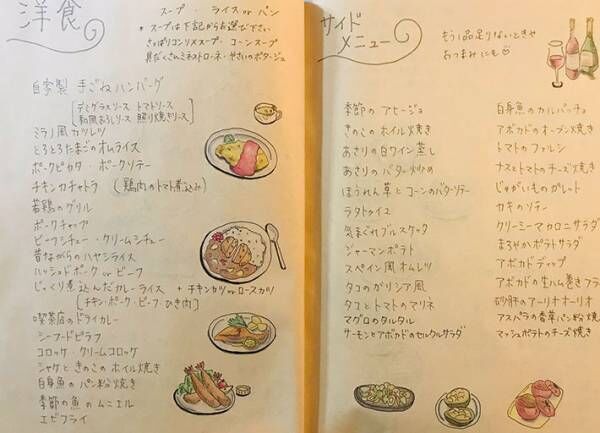 洋食
スープ・ライス or パン
*スープは下記からお選び下さい
さっぱりコンソメスープ・コーンスープ
具だくさんミネストローネ・やさいのポタージュ
自家製 手ごねハンバーグ
[デミグラスソース トマトソース
和風おろしソース 照り焼きソース]
ミラノ風カツレツ
とろとろたまごのオムライス
ポークピカタ・ポークソテー
チキンカチャトラ (鶏肉のトマト煮込み)
若鶏のグリル
ポークチャップ
ビーフシチュー・クリームシチュー
昔ながらのハヤシライス
ハッシュドポーク or ビーフ
じっくり煮込んだカレーライス + チキンカツ or ロースカツ
[チキン・ポーク・ビーフ・ひき肉]
喫茶店のドライカレー
シーフードピラフ
コロッケ・クリームコロッケ
シャケときのこのホイル焼き
白身魚のパン粉焼き
季節の魚のムニエル
エビフライ
サイド
メニュー
もう1品足りないときや
おつまみにも
季節のアヒージョ
きのこのホイル焼き
あさりの白ワイン蒸し
あさりのバター炒め
ほうれん草とコーンのバターソテー
ラタトゥイユ
気まぐれブルスケッタ
ジャーマンポテト
スペイン風オムレツ
タコのガリシア風
タコとトマトのマリネ
マグロのタルタル
サーモンとアボカドのセルクルサラダ
白身魚のカルパッチョ
アボカドのオーブン焼き
トマトのファルシ
ナスとトマトのチーズ焼き
じゃがいものガレット
カキのソテー
クリーミーマカロニサラダ
まろやかポテトサラダ
アボカドディップ
アボカドの生ハム巻きフラ
砂肝のアーリオオーリオ
アスパラの香草パン粉焼
マッシュポテトのチーズ焼き